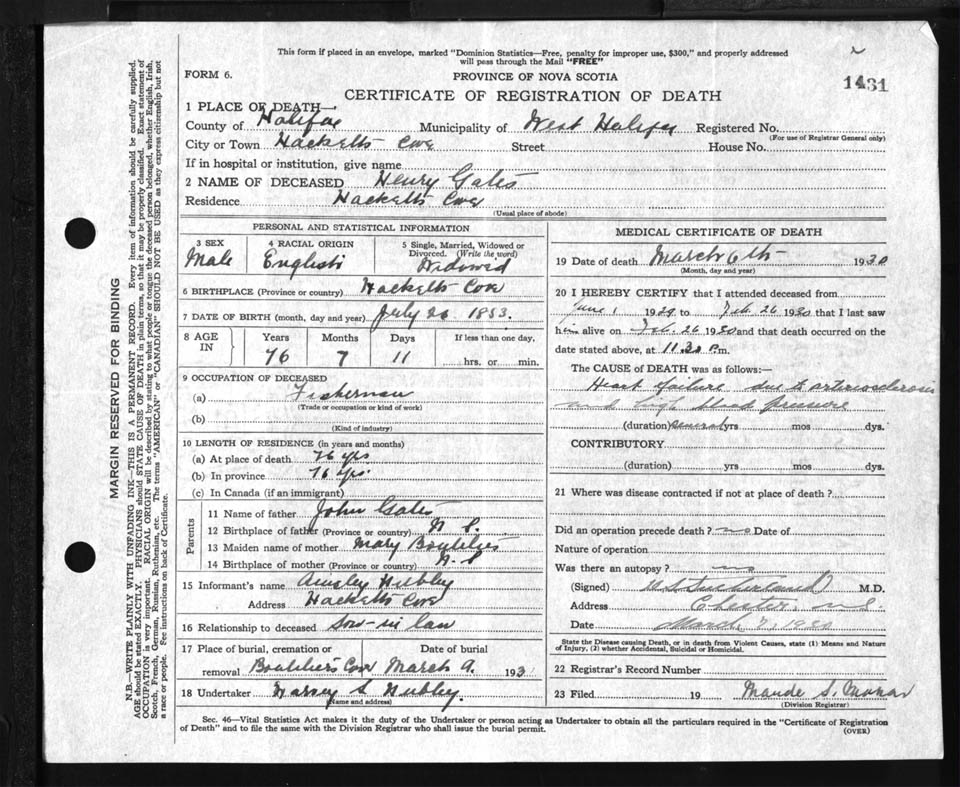 This form if placed in an envelope, marked "Dominion Statistics—Free, penalty for improper use, $300," and properly addressed
will pass through the Mail "FREE"
2
FORM 6.
PROVINCE OF NOVA SCOTIA
1431
CERTIFICATE OF REGISTRATION OF DEATH
1 PLACE OF DEATH—
County of Halifax Municipality of West Halifax Registered No.
(For use of Registrar General only)
City or Town Hacketts Cove Street House No.
If in hospital or institution, give name
2 NAME OF DECEASED Henry Gates
Residence Hacketts Cove
(Usual place of abode)
PERSONAL AND STATISTICAL INFORMATION
3 SEX
Male
4 RACIAL ORIGIN
English
5 Single, Married, Widowed or
Divorced. (Write the word)
Widowed
6 BIRTHPLACE (Province or country) Hacketts Cove
7 DATE OF BIRTH (month, day and year) July 26 1853.
8 AGE IN
Years Months Days If less than one day,
76 7 11 hrs. or min.
9 OCCUPATION OF DECEASED
(a) Fisherman
(Trade or occupation or kind of work)
(b)
(Kind of industry)
10 LENGTH OF RESIDENCE (in years and months)
(a) At place of death 76 yps
(b) In province 76 yps.
(c) In Canada (if an immigrant)
Parents
11 Name of father John Gates
12 Birthplace of father (Province or country) N. S.
13 Maiden name of mother Mary Boutilier
14 Birthplace of mother (Province or country) N. S
15 Informant's name Ainsley Hubley
Address Hacketts Cove
16 Relationship to deceased Son-in law
17 Place of burial, cremation or Date of burial
removal Boutiliers Cove March 9. 193
18 Undertaker Harvey S. Hubley.
(Name and address)
MEDICAL CERTIFICATE OF DEATH
19 Date of death March 6th 1930
(Month, day and year)
20 I HEREBY CERTIFY that I attended deceased from
June 1 1929 to Feb. 26 1930 that I last saw
him alive on Feb. 26 1930 and that death occurred on
date stated above, at 11.30 P.m.
The CAUSE OF DEATH was as follows:—
Heart failure due to arteriosclerosis
and high blood pressure
(duration) several yrs mos dys.
CONTRIBUTORY
(duration) yrs mos dys.
21 Where was disease contracted if not at place of death?
Did an operation precede death? no Date of
Nature of operation
Was there an autopsy? no
(Signed) Sutherland M.D.
Address Chester, N.S.
Date March 7, 1930
State the Disease causing Death, or in death from Violent Causes, state (1) Means and Nature
of Injury, (2) whether Accidental, Suicidal or Homicidal.
22 Registrar's Record Number
23 Filed 19 Maude S.
(Division Registrar)
Sec. 46—Vital Statistics Act makes it the duty of the Undertaker or person acting as Undertaker to obtain all the particulars required in the "Certificate of Registration
of Death" and to file the same with the Division Registrar who shall issue the burial permit.
(OVER)
MARGIN RESERVED FOR BINDING
N.B.—WRITE PLAINLY WITH UNFADING INK—THIS IS A PERMANENT RECORD. Every item of information should be carefully supplied.
AGE should be stated EXACTLY. PHYSICIANS should STATE CAUSE OF DEATH in plain terms, so that it may be properly classified. Exact statement of
OCCUPATION is very important. RACIAL ORIGIN will be described by stating to what people or tongue the deceased person belonged, whether English, Irish,
Scotch, French, German, Russian, Ruthenian, etc. The terms "AMERICAN" or "CANADIAN" SHOULD NOT BE USED as they express citizenship but not
a race or people. See instructions on back of Certificate.